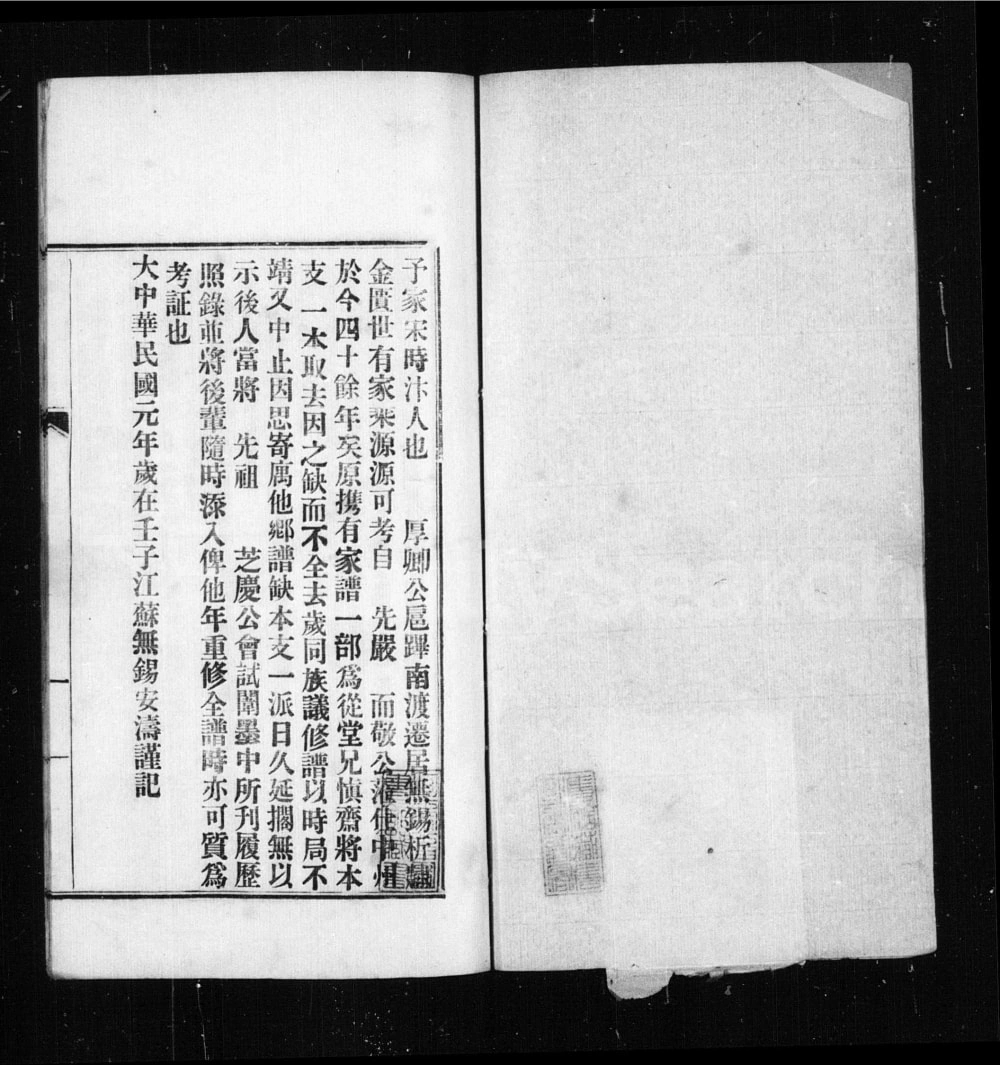 予家宋時汴人也　厚卿公扈蹕南渡遷居無錫析
金匱世有家乘源源可考自　先嚴　而敬公　中州
於今四十餘年矣原攜有家譜一部為從堂兄慎齋將本
支一本取去因之缺而不全去歲同族議修譜以時局不
靖又中止因思寄寓他鄉譜缺本支一派日久延擱無以
示後人當將　先祖　芝慶公會試闈墨中所刊履歷
照錄並將後輩隨時添入俾他年重修全譜時亦可質為
考証也
大中華民國元年歲在壬子江蘇無錫安濤謹記